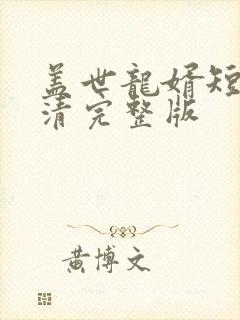 盖世龍婿短
清完整版
黄博文